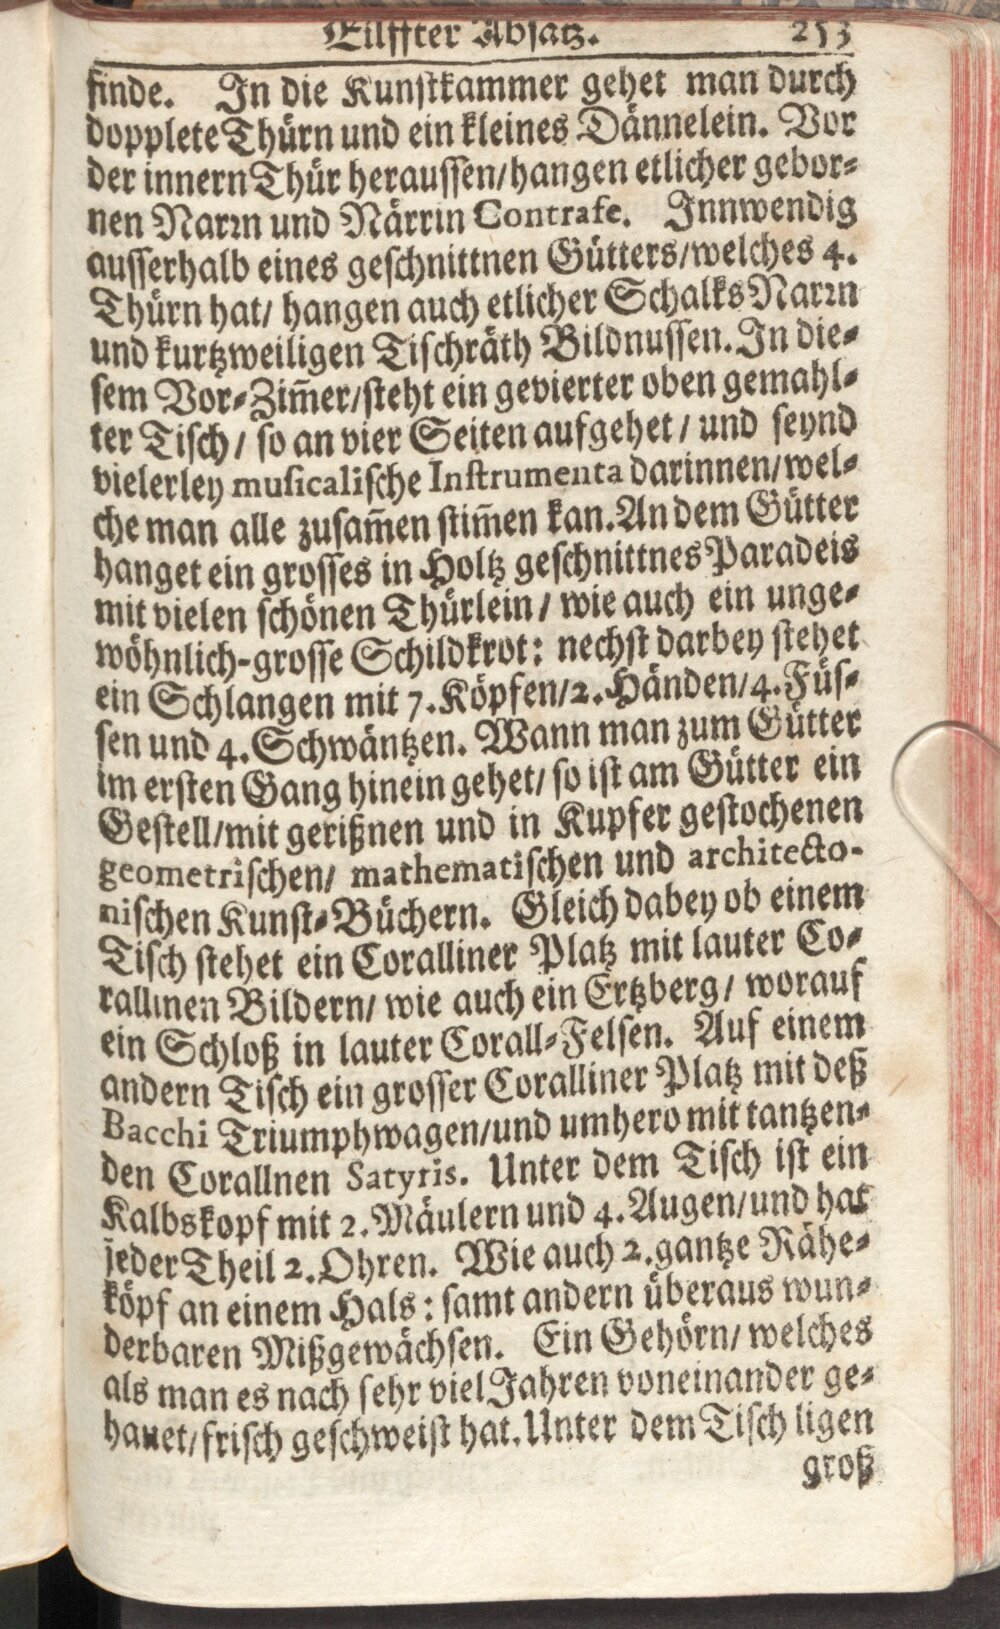 Eilffter Absatz. 253
finde. In die Kunstkammer gehet man durch
dopplete Thürn und ein kleines Dännelein. Vor
der innern Thür heraussen/hangen etlicher gebor-
nen Narrn und Närrin Contrafe. Innwendig
ausserhalb eines geschnittnen Gütters/welches 4.
Thürn hat/ hangen auch etlicher SchalksNarrn
und kurtzweiligen Tischräth Bildnussen. In die-
sem Vor-Zim̃er/steht ein gevierter oben gemahl-
ter Tisch/ so an vier Seiten aufgehet/ und seynd
vielerley musicalische Instrumenta darinnen/wel-
che man alle zusam̃en stim̃en kan. An dem Gütter
hanget ein grosses in Holtz geschnittnes Paradeis
mit vielen schönen Thürlein/ wie auch ein unge-
wöhnlich-grosse Schildkrot: nechst darbey stehet
ein Schlangen mit 7. Köpfen/2. Händen/4. Füs-
sen und 4. Schwäntzen. Wann man zum Gütter
im ersten Gang hinein gehet/ so ist am Gütter ein
Gestell/mit gerißnen und in Kupfer gestochenen
geometrischen/ mathematischen und architecto-
nischen Kunst-Büchern. Gleich dabey ob einem
Tisch stehet ein Coralliner Platz mit lauter Co-
rallinen Bildern/ wie auch ein Ertzberg/ worauf
ein Schloß in lauter Corall-Felsen. Auf einem
andern Tisch ein grosser Coralliner Platz mit deß
Bacchi Triumphwagen/und umhero mit tantzen-
den Corallnen Satyris. Unter dem Tisch ist ein
Kalbskopf mit 2. Mäulern und 4. Augen/und hat
jeder Theil 2. Ohren. Wie auch 2. gantze Rähe-
köpf an einem Hals: samt andern überaus wun-
derbaren Mißgewächsen. Ein Gehörn/ welches
als man es nach sehr viel Jahren voneinander ge-
hauet/frisch geschweist hat. Unter dem Tisch ligen
groß